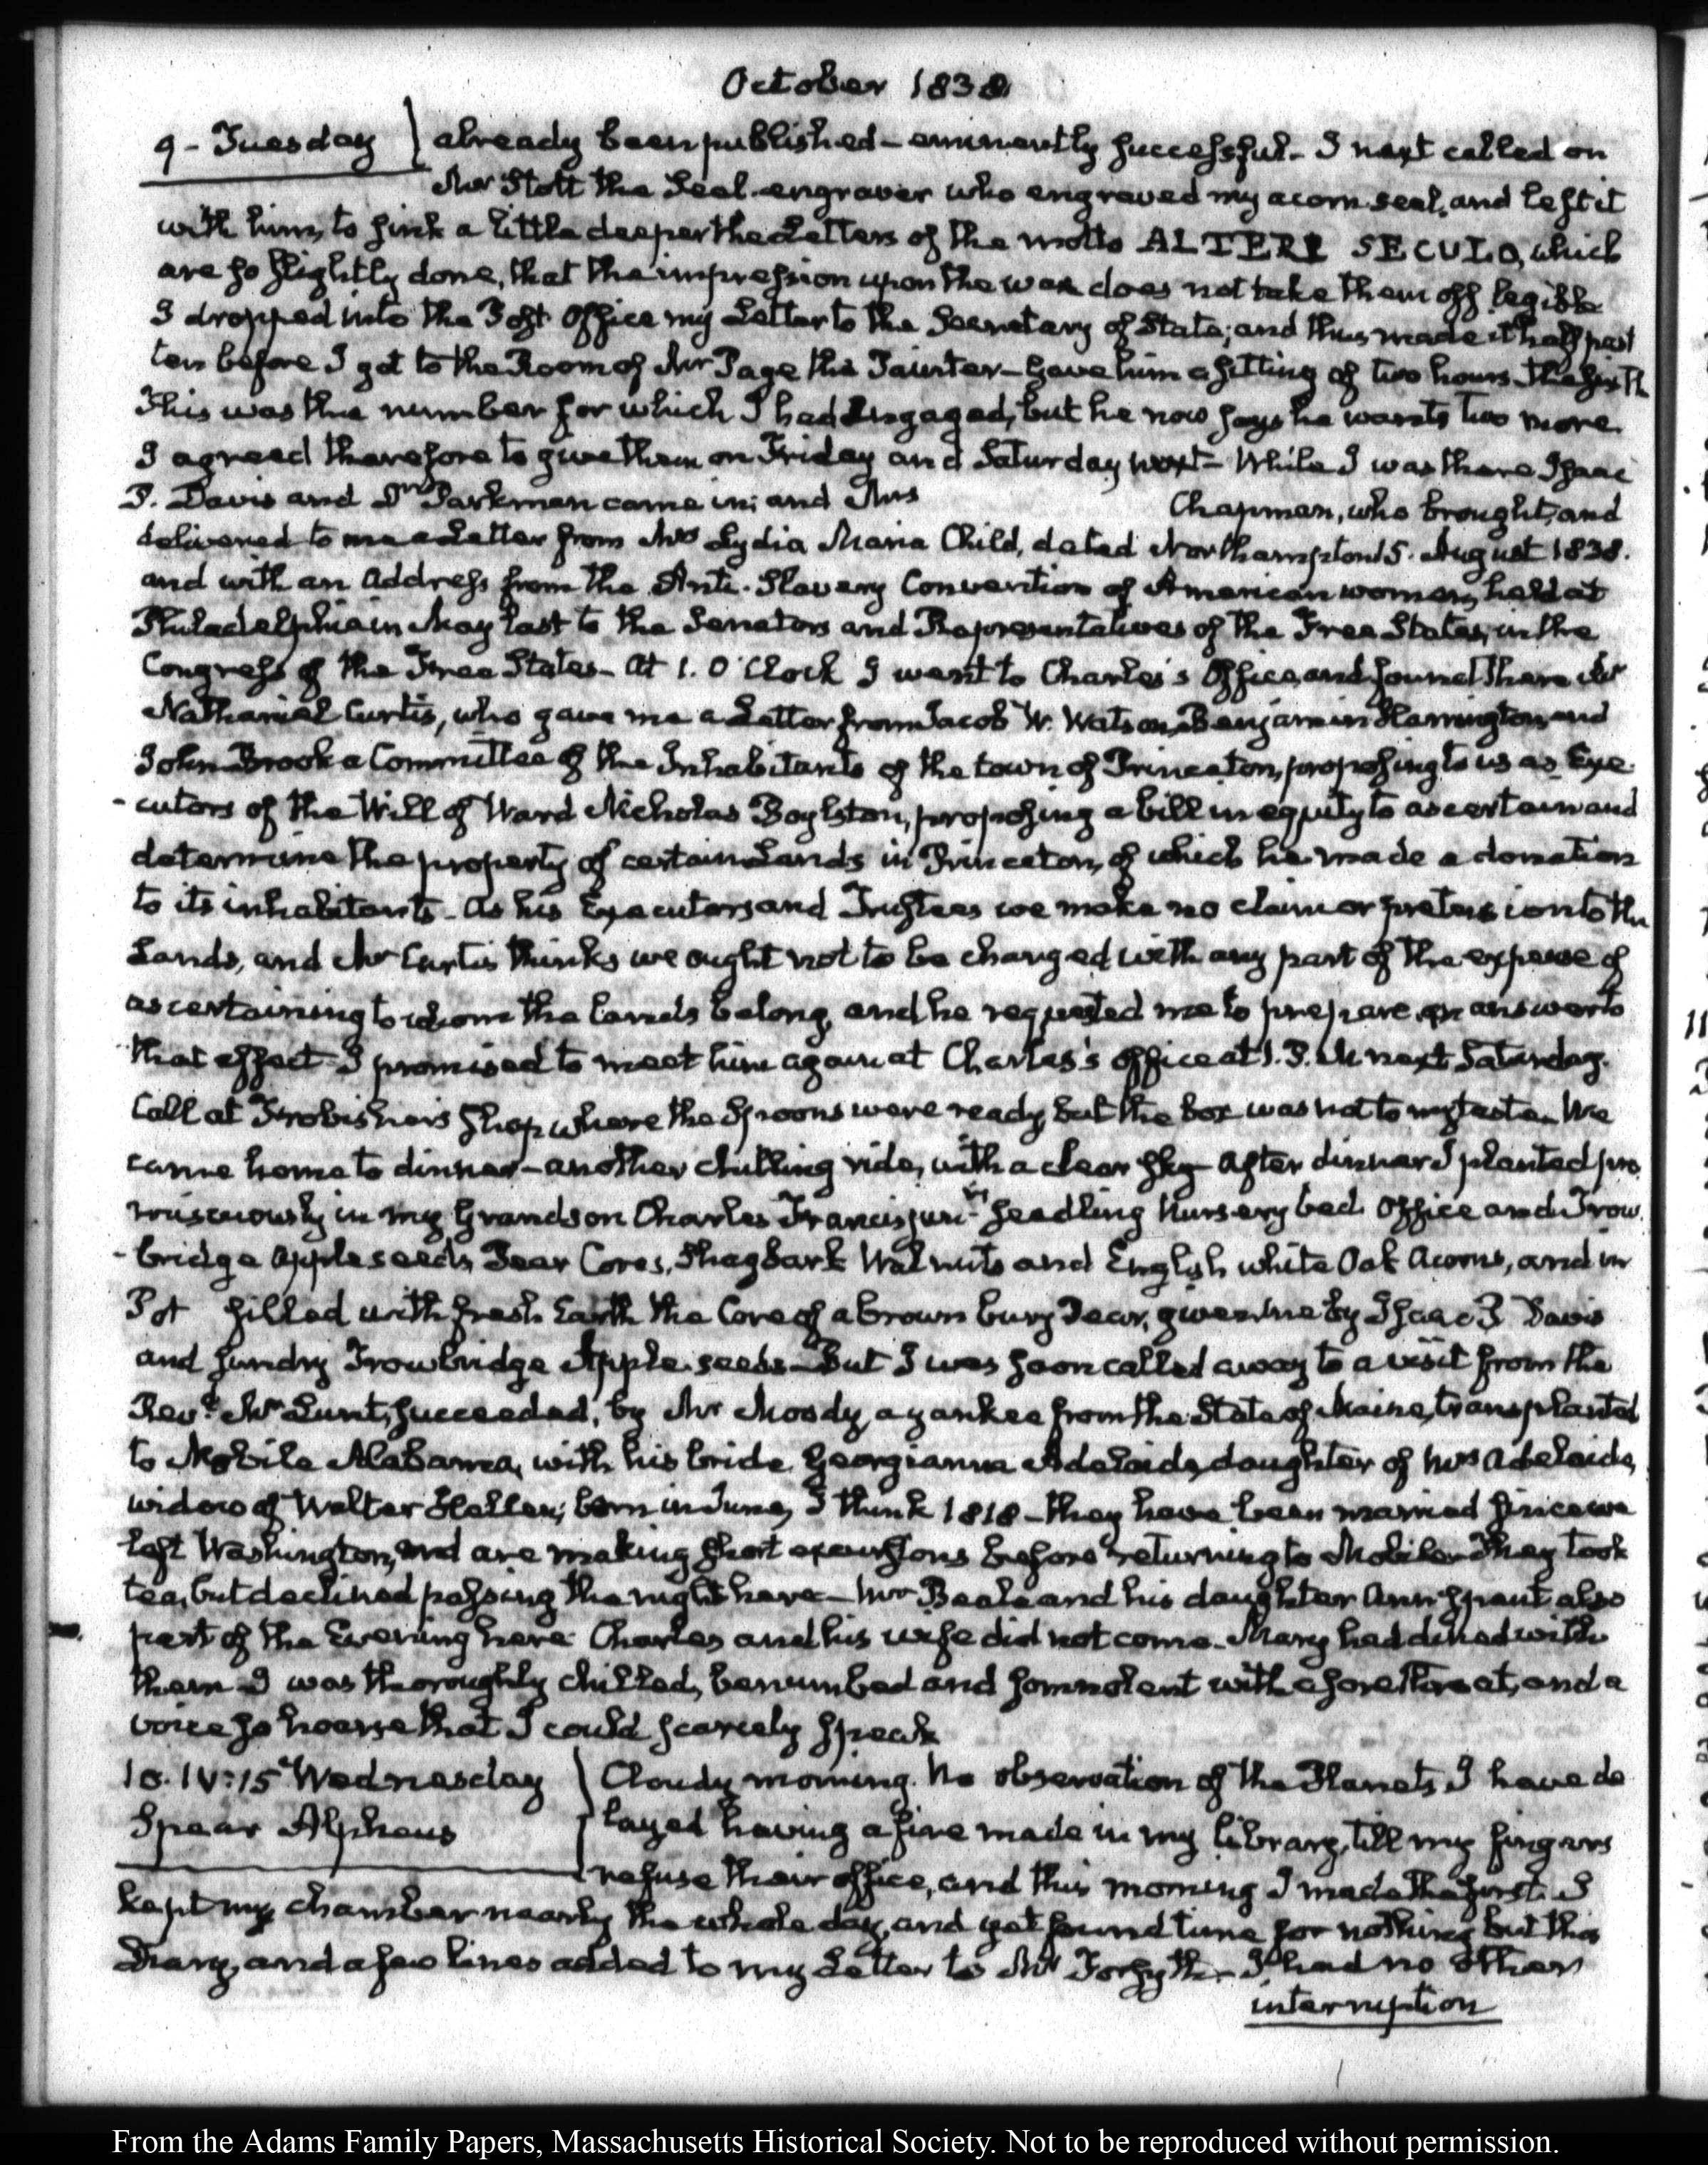 October 1838
9 - Tuesday
already been published - eminently successful - I next called on
Mr Stott the Seal engraver who engraved my acorn seal, and left it
with him, to sink a little deeper the Letters of the motto ALTERI SECULO, which
are so slightly done, that the impression upon the wax does not take them off legible
I dropped into the Post Office my Letter to the Secretary of State; and thus made it half past
ten before I got to the Room of Mr Page the Painter - Gave him a sitting of two hours. The sixth
This was the number for which I had Engaged, but he now says he wants two more.
I agreed therefore to give them on Friday and Saturday next - While I was there Isaac
P. Davis and Dr Parkman came in; and Mrs Chapman, who brought, and
delivered to me a Letter from Mrs Lydia Maria Child, dated Northampton 15. August 1838.
and with an Address from the Anti-Slavery Convention of American women, held at
Philadelphia in May last to the Senators and Representatives of the Free States, in the
Congress of the Free States - At 1. O'Clock I went to Charles's Office, and found there Mr
Nathaniel Curtis, who gave me a Letter from Jacob W. Watson, Benjamin Harrington and
John Brook a Committee of the Inhabitants of the town of Princeton, proposing to us as Exe-
-cutors of the Will of Ward Nicholas Boylston, proposing a bill in equity to ascertain and
determine the property of certain Lands in Princeton, of which he made a donation
to its inhabitants - As his Executors and Trustees we make no claim or pretension to the
Lands, and Mr Curtis thinks we ought not to be charged with any part of the expense of
ascertaining to whom the lands belong, and he requested me to prepare an answer to
that effect - I promised to meet him again at Charles's office at 1. P.M. next Saturday.
Call at Frobisher's Shop where the Spoons were ready, but the box was not to my taste. We
came home to dinner - another chilling ride, with a clear sky - After dinner I planted pro
miscuously in my Grandson Charles Francis junr's Seedling Nursery bed Office and Trow
-bridge Apple seeds, Pear Cores, Shagbark Walnuts and English white Oak Acorns, and in
Pot filled with fresh Earth the Core of a brown bury Pear, given me by Isaac P Davis
and sundry Trowbridge Apple seeds - But I was soon called away to a visit from the
Revd. Mr Lunt, succeeded, by Mr Moody, a yankee from the State of Maine, transplanted
to Mobile Alabama, with his bride Georgianna Adelaide, daughter of Mrs Adelaide,
widow of Walter Hellen; born in June, I think 1818 - they have been married since we
left Washington, and are making short excursions before returning to Mobile. They took
tea, but declined passing the night here - Mr Beale and his daughter Ann spent also
part of the Evening here. Charles and his wife did not come - Mary had dined with
them - I was thoroughly chilled, benumbed and somnolent with a sore throat, and a
voice so hoarse that I could scarcely speak
10. IV:15 Wednesday
Spear Alpheus
Cloudy morning. No observation of the Planets. I have de
layed having a fire made in my library, till my fingers
refuse their office, and this morning I made the first. I
kept my chamber nearly the whole day, and yet found time for nothing but this
Diary, and a few lines added to my Letter to Mr Forsyth - I had no other
interruption
From the Adams Family Papers, Massachusetts Historical Society. Not to be reproduced without permission.